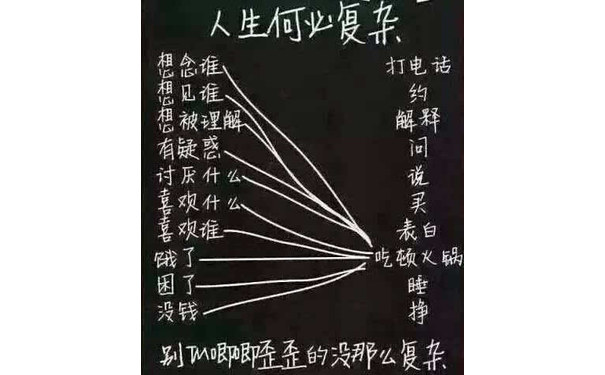 人生何必复杂
想念谁 打电话
想见谁 约
想被理解 解释
有疑惑 问
讨厌什么 说
喜欢什么 买
喜欢谁 表白
饿了 吃顿火锅
困了 睡
没钱 挣
别TM唧唧歪歪的没那么复杂